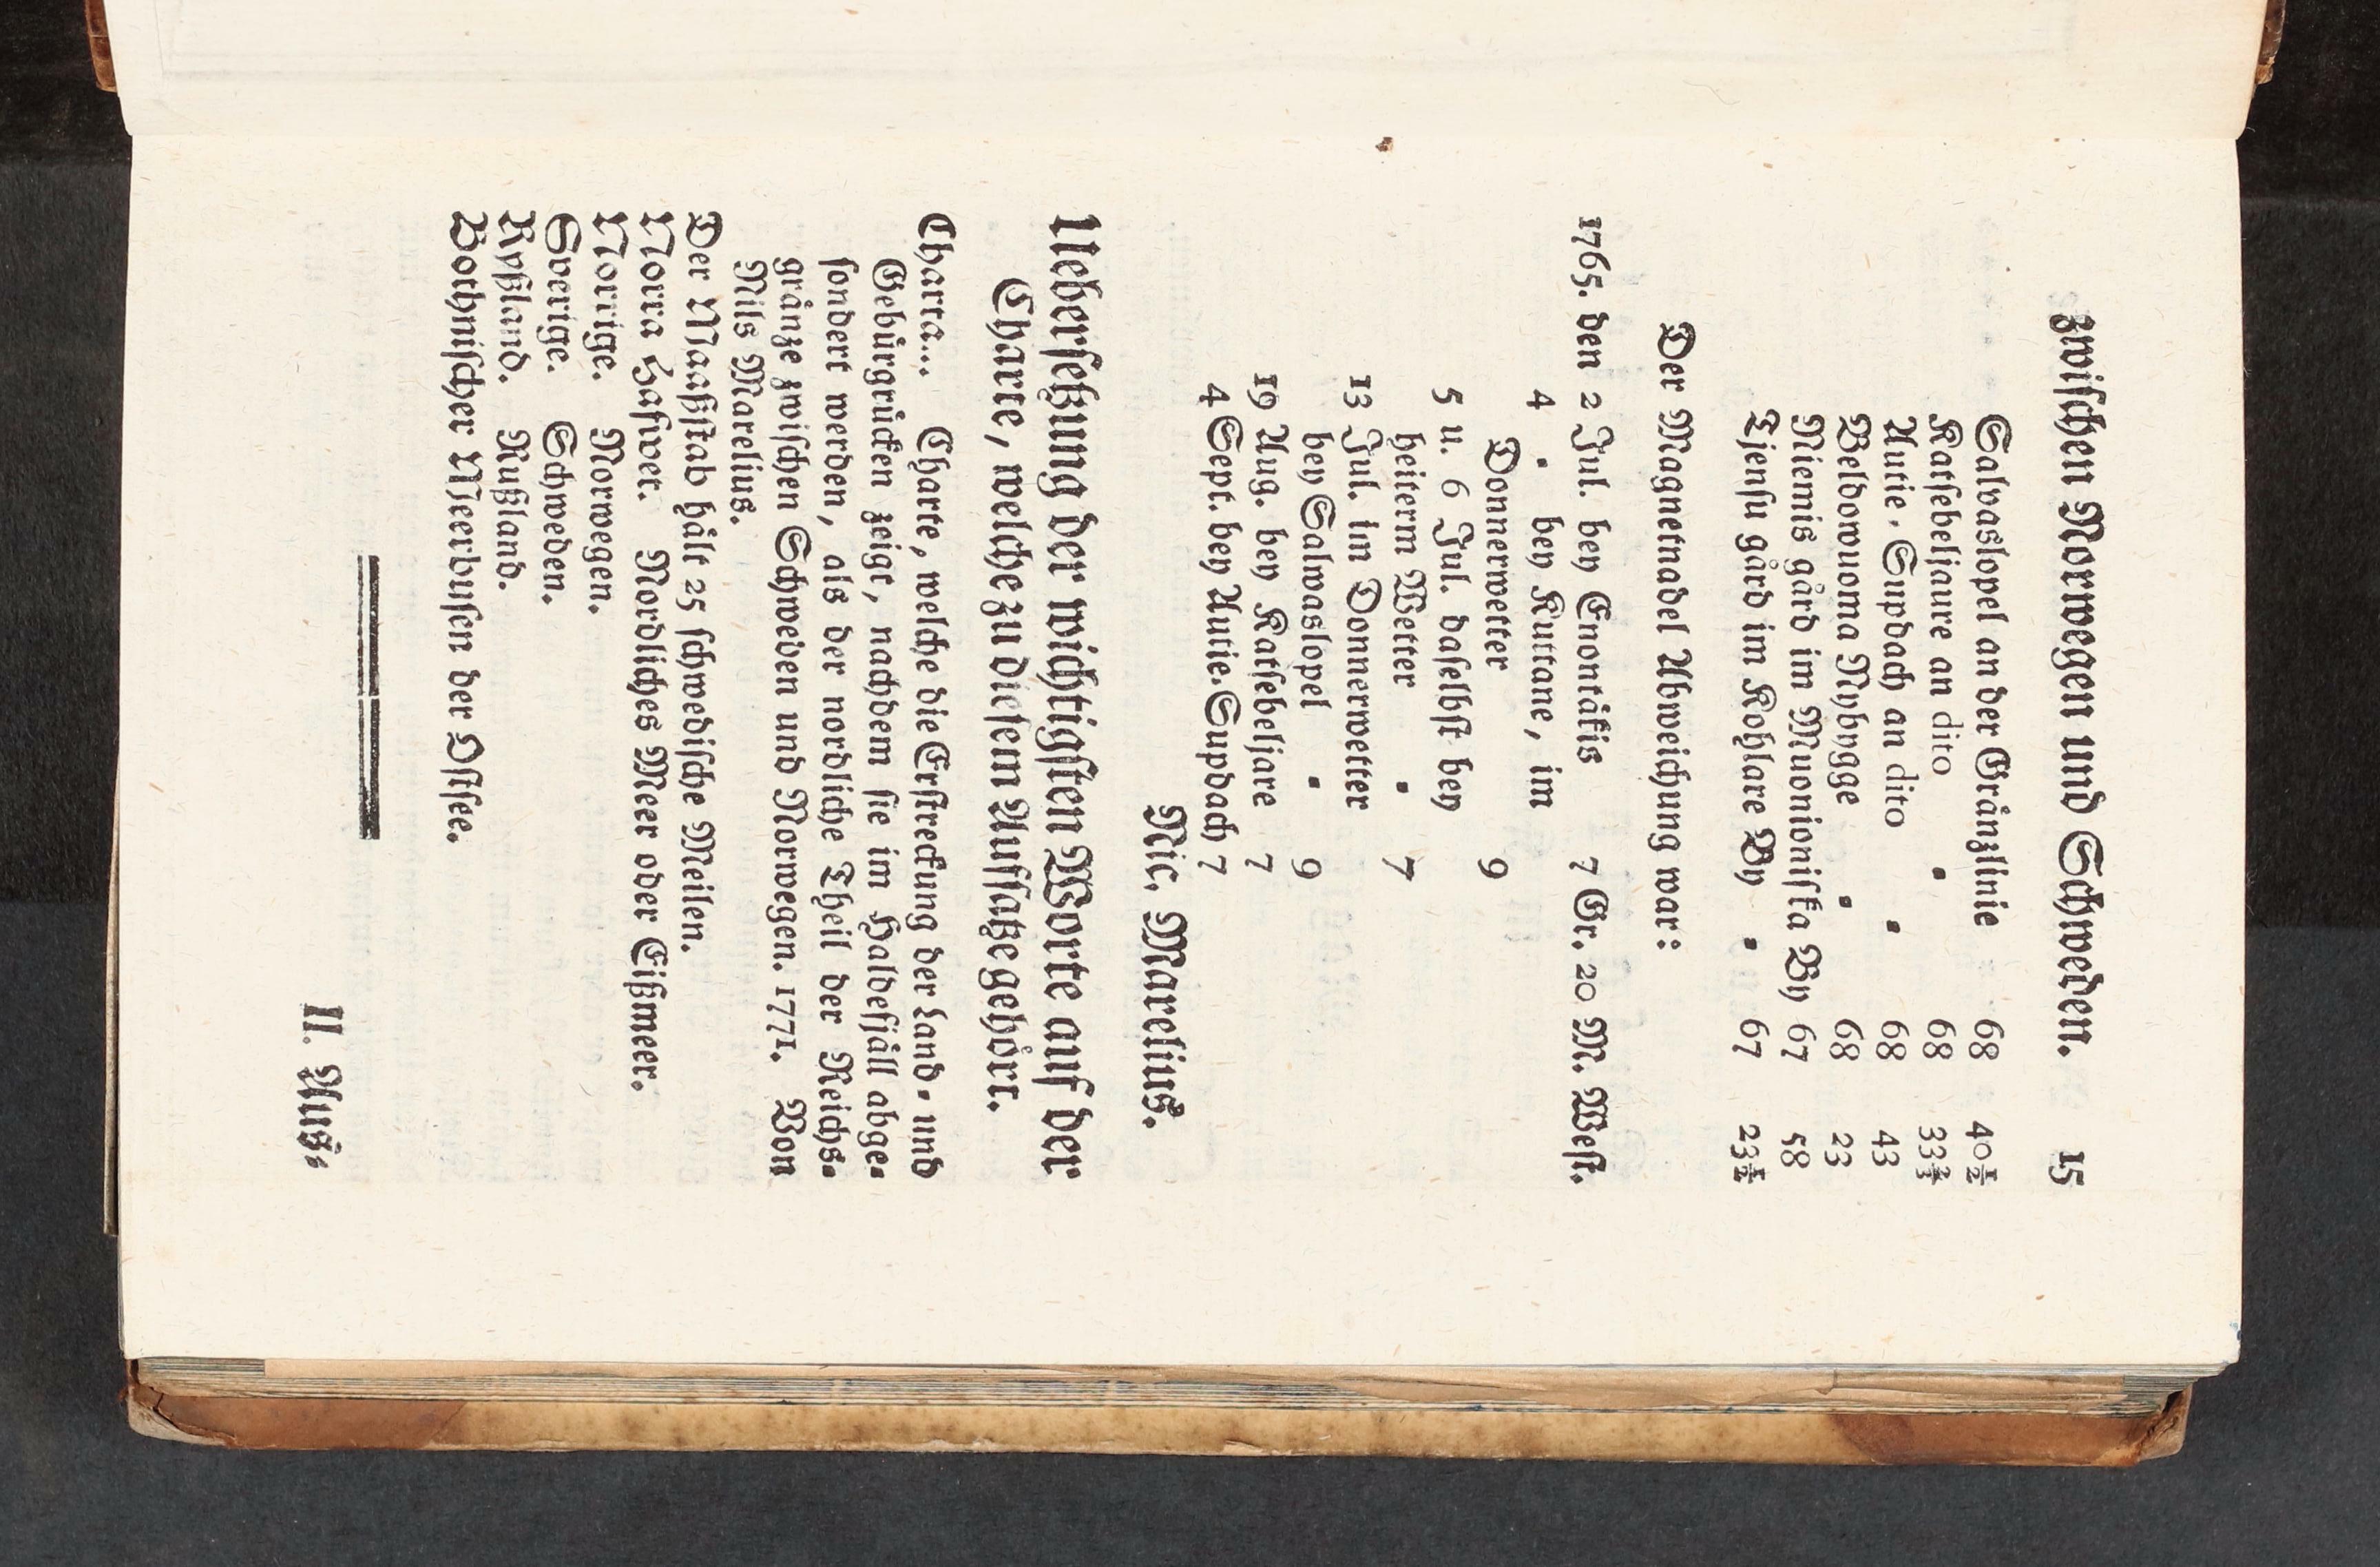 zwiſchen Norwegen und Schweden. 15
Salvaslopel an der Gränzlinie 68 40½
Katſebeljaure an dito 68 33¾
Autie-Supdach an dito 68 43
Beldowuoma Nybygge 68 23
Niemis gård im Muonioniſka By 67 58
Tjenſu gård im Kohlare By 67 23½
Der Magnetnadel Abweichung war:
1765. den 2 Jul. bey Enontäkis 7 Gr. 20 M. Weſt.
4 - bey Kuttane, im
Donnerwetter 9
5 u. 6 Jul. daſelbſt bey
heiterm Wetter 7
13 Jul. im Donnerwetter
bey Salwaslopel 9
19 Aug. bey Katſebeljare 7
4 Sept. bey Autie-Supdach 7
Nic. Marelius.
Ueberſetzung der wichtigſten Worte auf der
Charte, welche zu dieſem Aufſatze gehört.
Charta... Charte, welche die Erſtreckung der Land- und
Gebürgrücken zeigt, nachdem ſie im Haldefjäll abge-
ſondert werden, als der nordliche Theil der Reichs-
gränze zwiſchen Schweden und Norwegen. 1771. Von
Nils Marelius.
Der Maaßſtab hält 25 ſchwediſche Meilen.
Norra Hafwet. Nordliches Meer oder Eißmeer.
Norrige. Norwegen.
Sverige. Schweden.
Ryßland. Rußland.
Bothniſcher Meerbuſen der Oſtſee.
II. Aus-